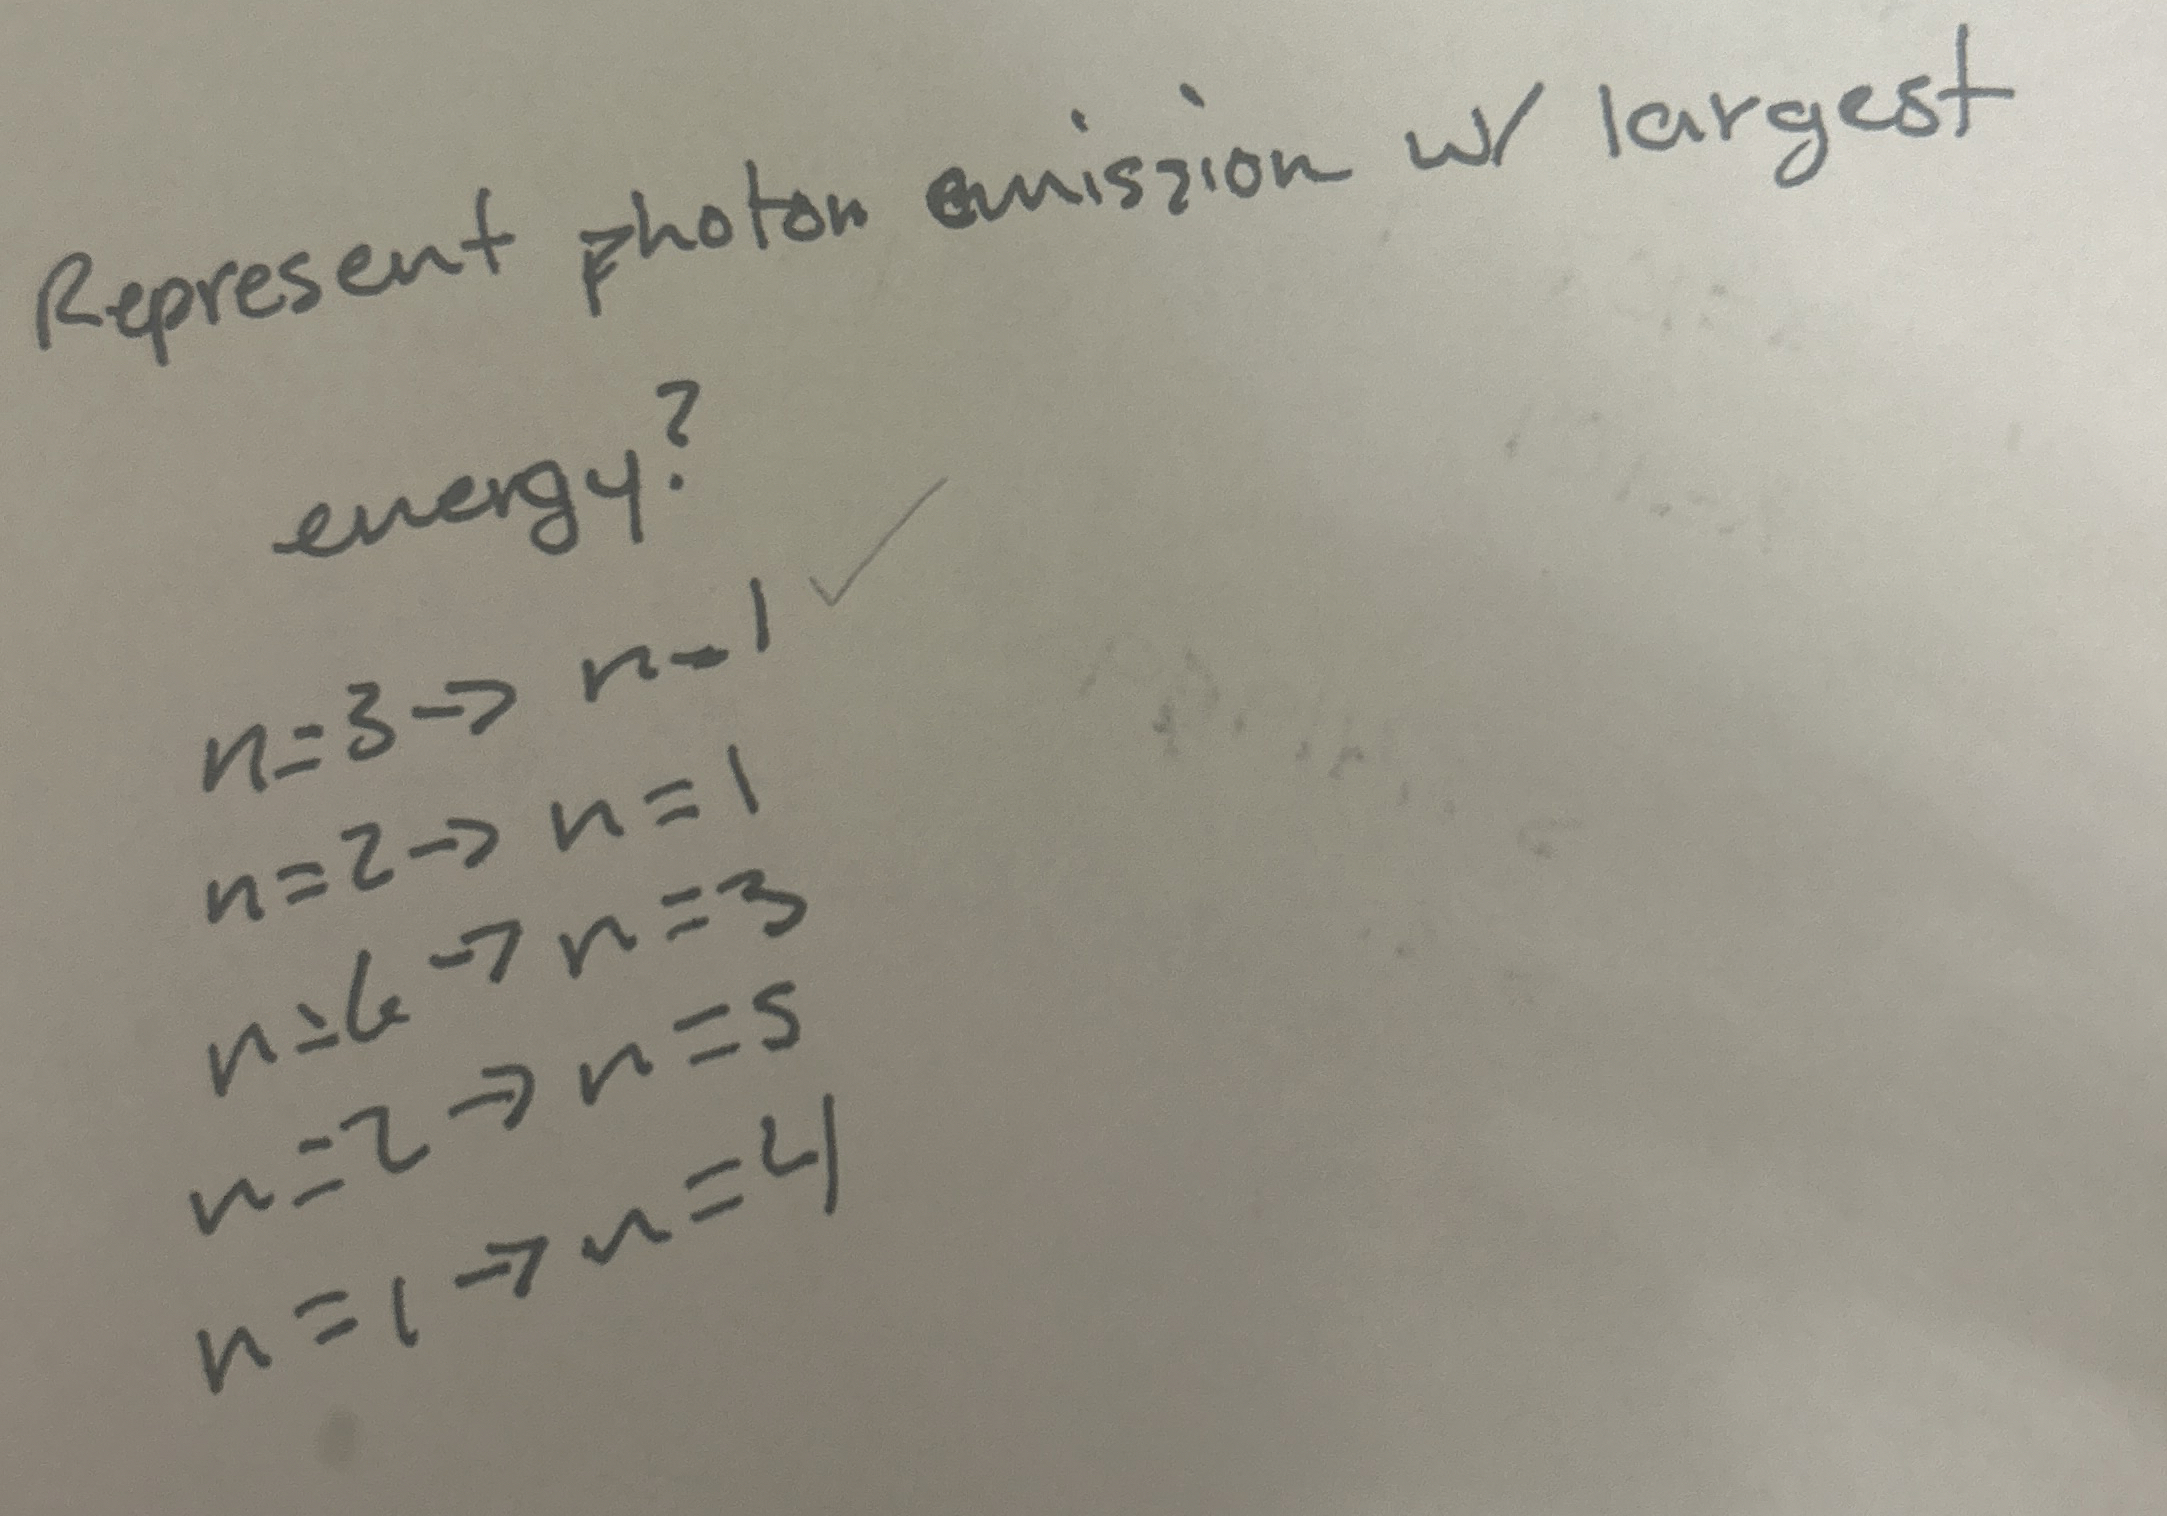 Represent photon emission w/ largest
energy?
n=3→ n-1 ✓
n=2→ n=1
n=6→ n=3
n=2→ n=5
n=1→ n=4